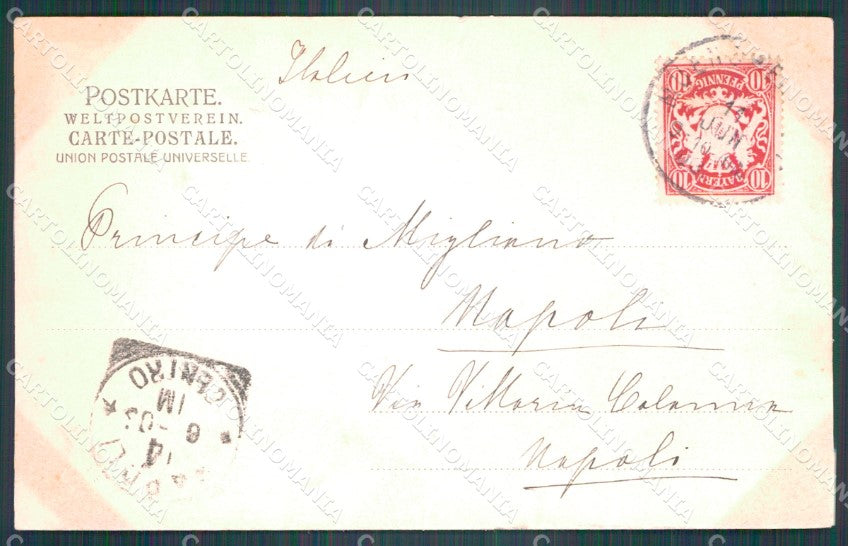 Italien
POSTKARTE.
WELTPOSTVEREIN.
CARTE-POSTALE.
UNION POSTALE UNIVERSELLE.
10 PFENNIG 10
BAYERN
10 10
JUN
Principe di Migliano
Napoli
Via Vittoria Colonna
Napoli
CENTRO
1M
6 -03
14
CARTOLINOMANIA